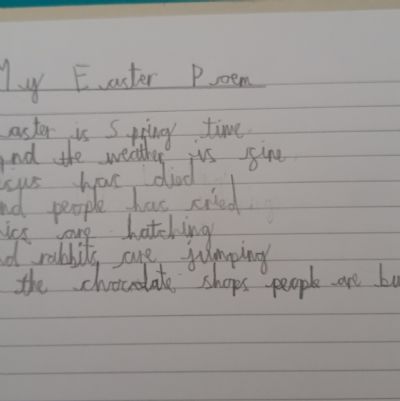 My Easter Poem
aster is Spring time
and the weather is fine
esus has died
nd people has cried
ics are hatching
nd rabbits are jumping
the chocolate shops people are bu